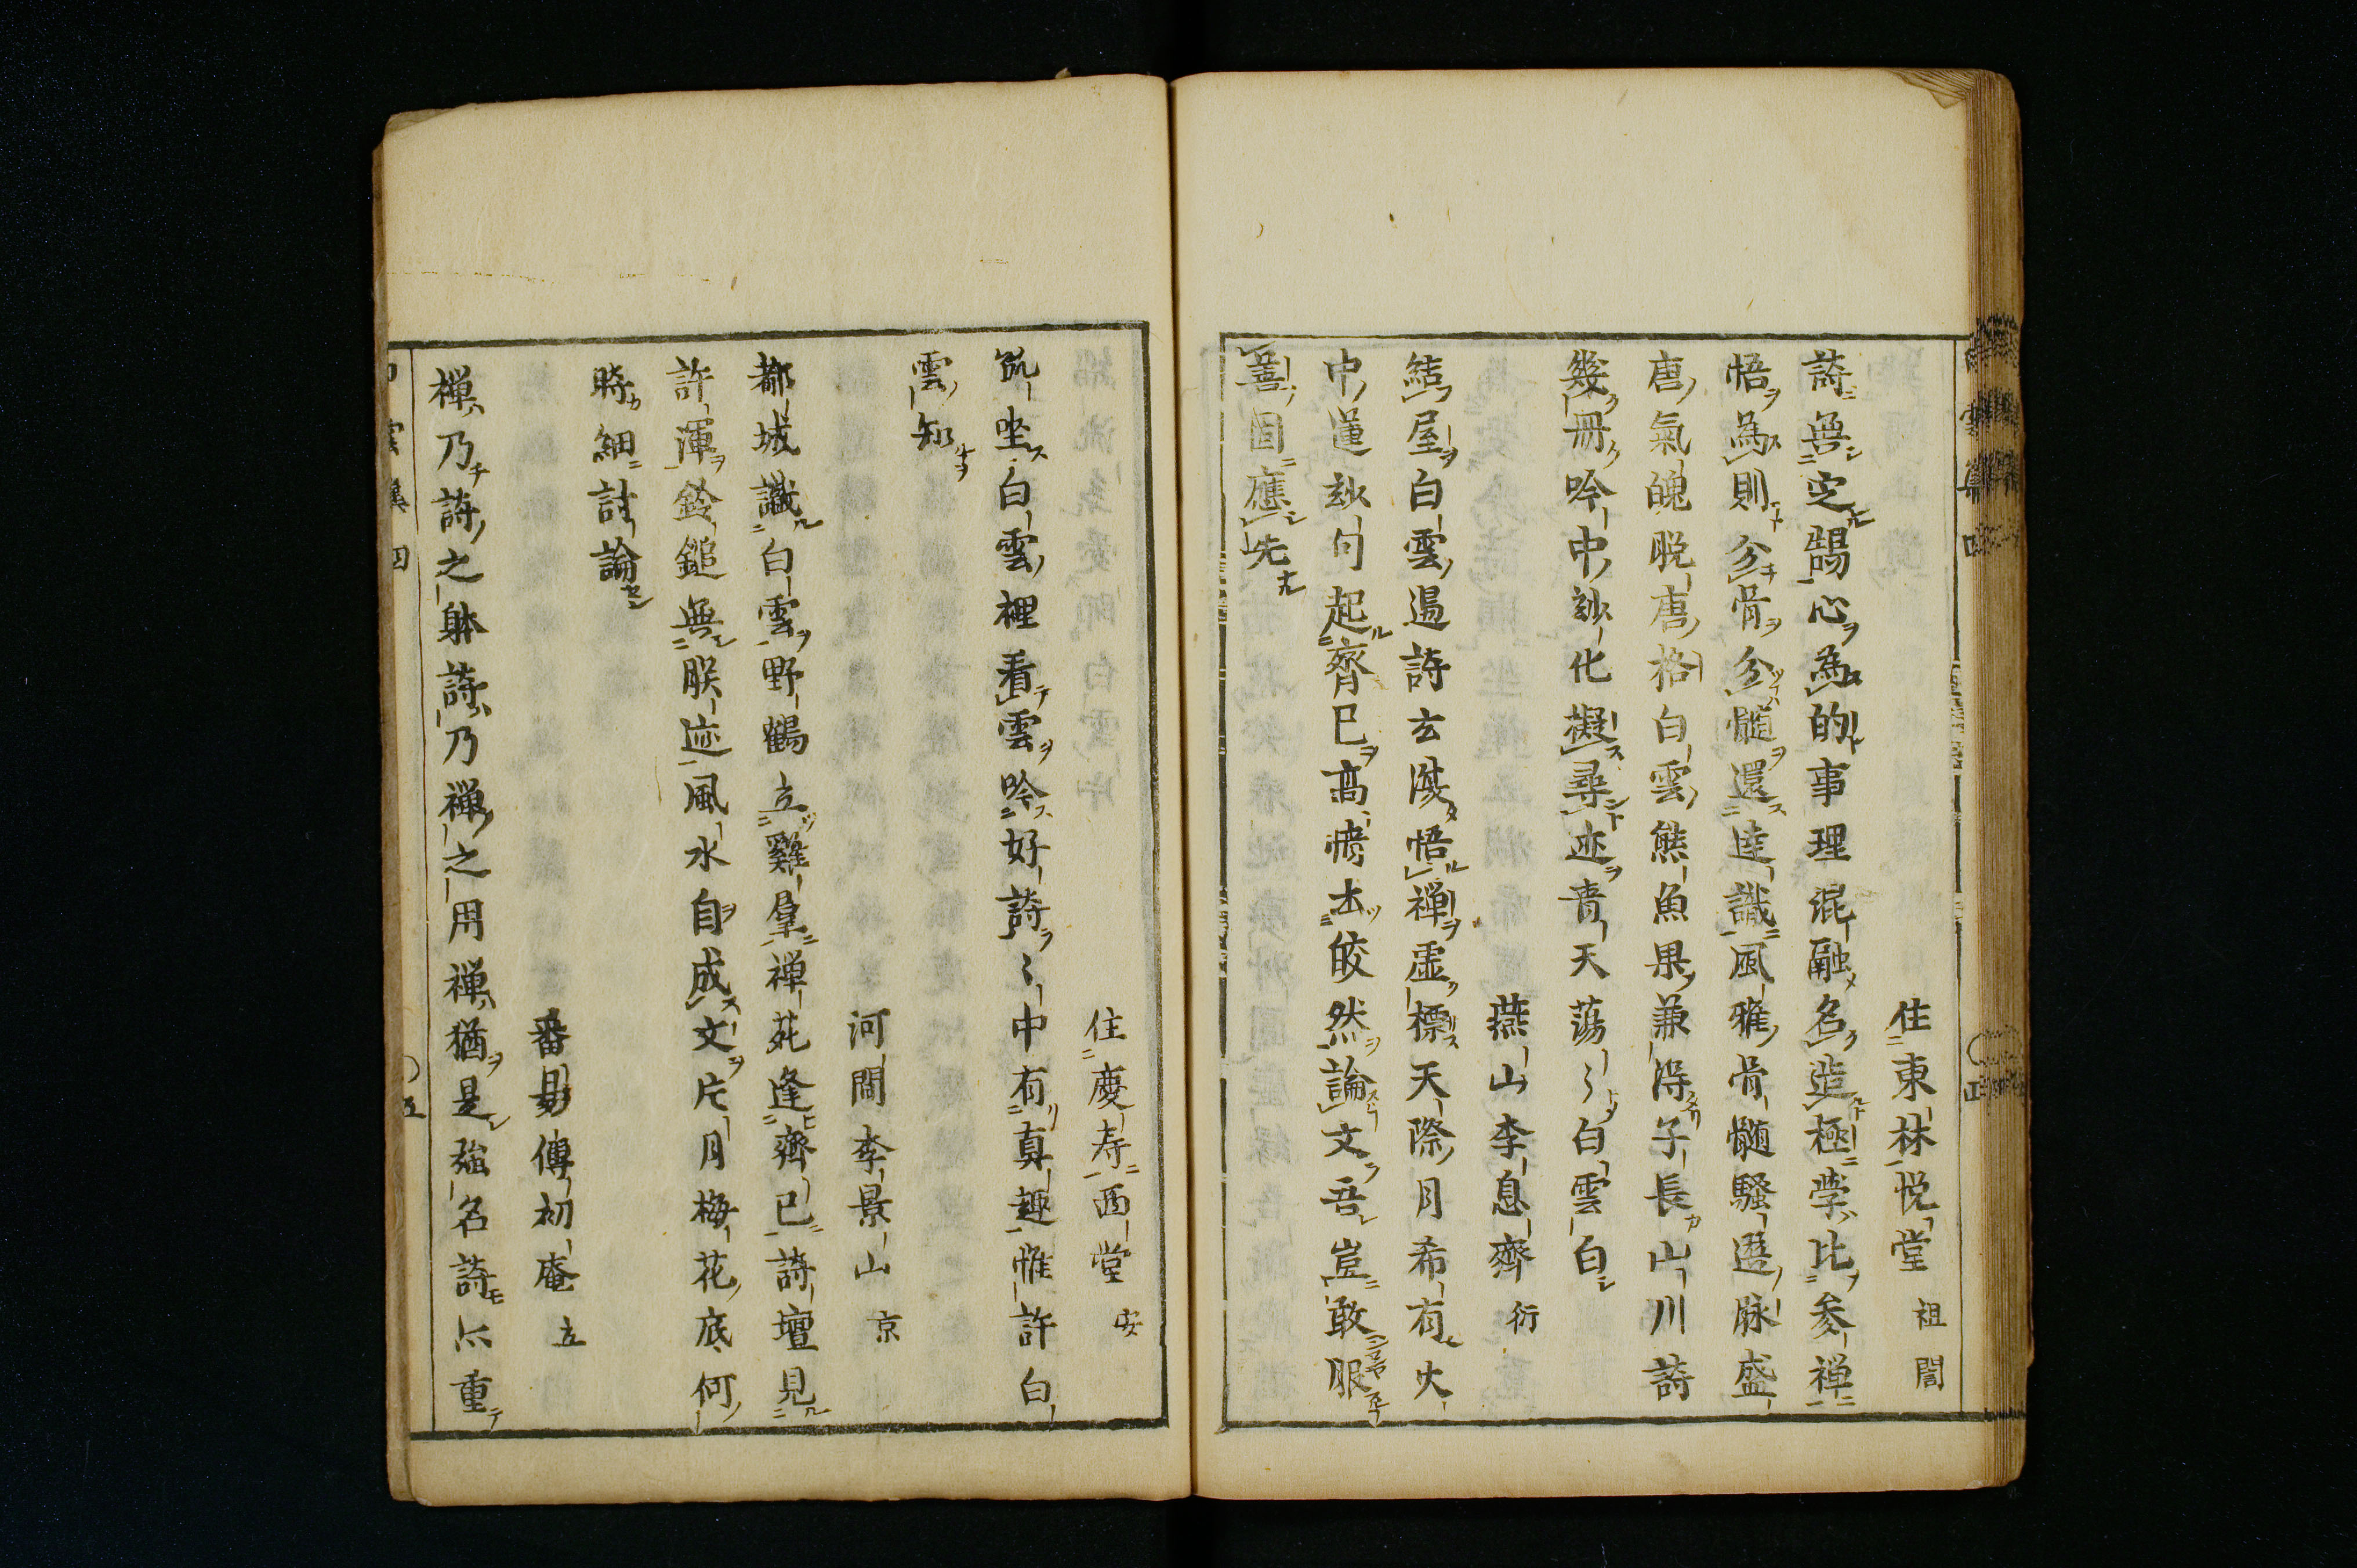 住東林悦堂 祖誾
詩無定鵠心為的事理混融名造極學比参禅
悟為則分骨分髄還達識風雅骨髄騷選脉盛
唐氣魄脱唐格白雲熊魚果兼得子長山川詩
幾冊吟中玅化擬尋迹青天蕩〻白雲白
燕山李息齊 衍
結屋白雲過詩玄深悟禅虚標天際月希有火
中蓮玅句起齊已高情去皎然論文吾豈敢服
善固應先
住慶寿西堂 安
筑坐白雲裡看雲吟好詩〻中有真趣惟許白
雲知
河間李景山 京
都城識白雲野鶴立雞羣禅苑逢齊已詩壇見
許渾鈴鎚無朕迹風水自成文片月梅花底何
時細討論
番昜傳初庵 立
禅乃詩之躰詩乃禅之用禅猶是強名詩亦重